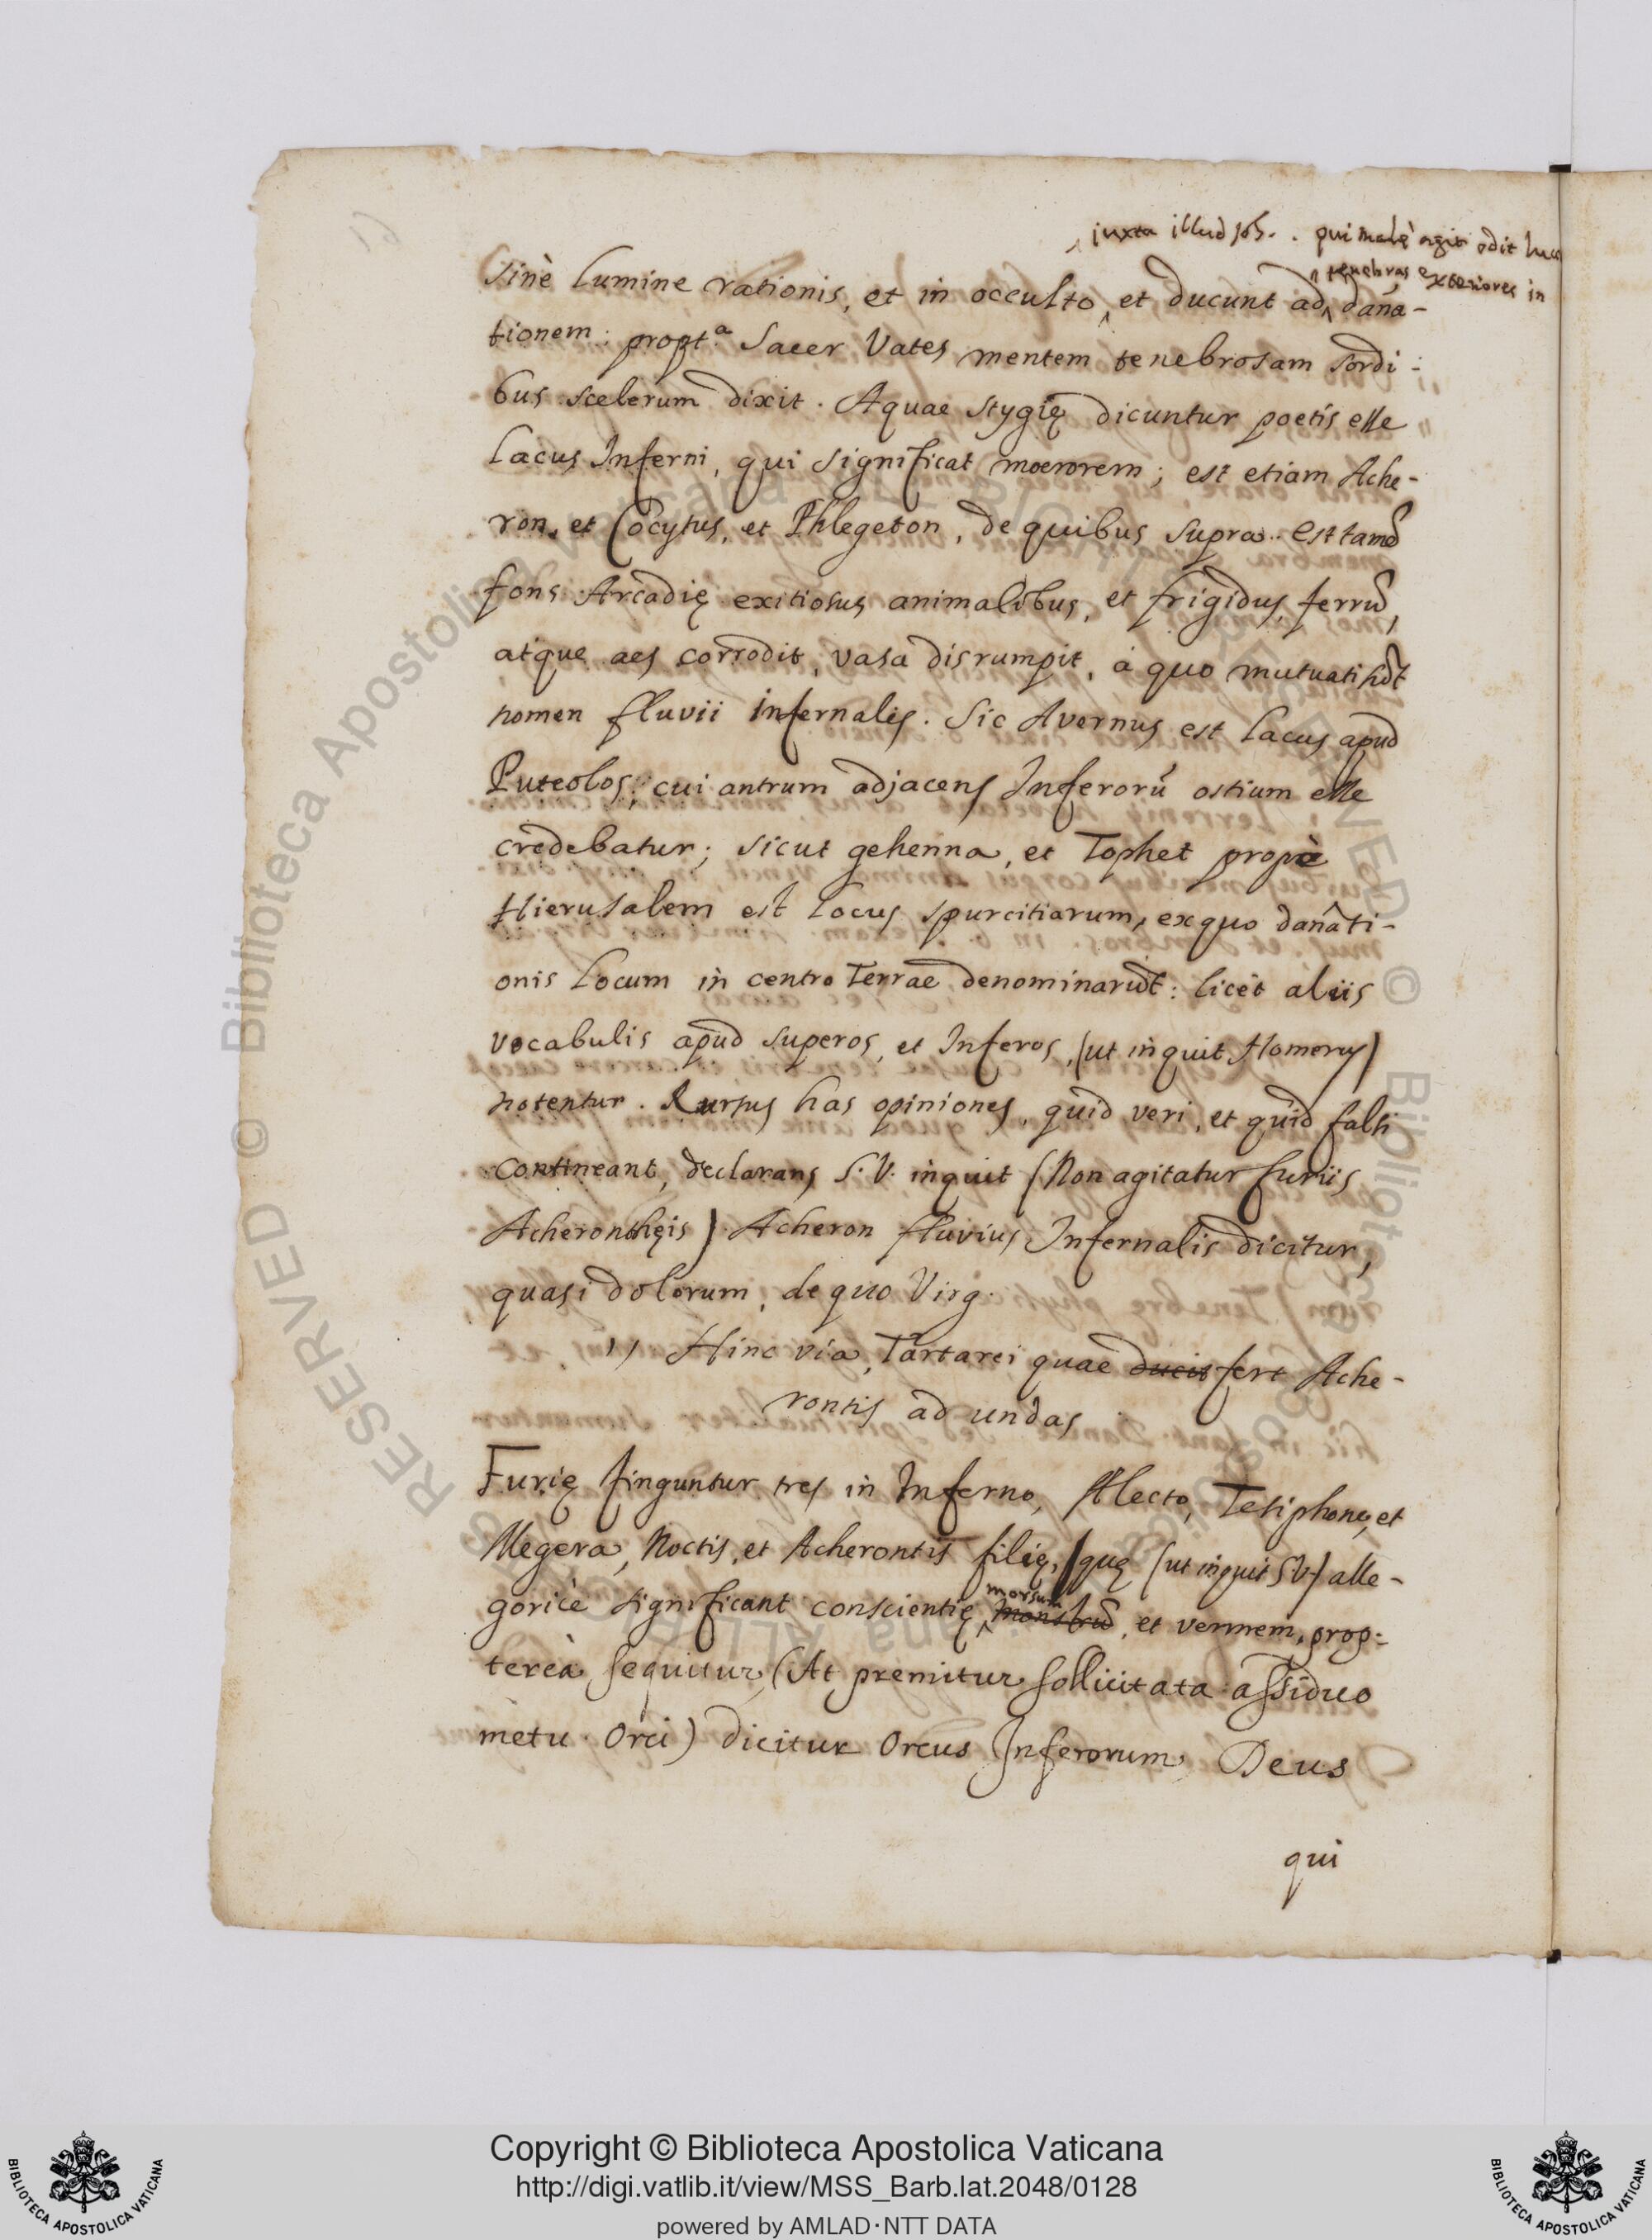 iuxta illud Joh. . qui malè agit odit luce
tenebras exteriores in
Sinè lumine rationis, et in occulto, et ducunt ad dana-
tionem: propt.a Sacer Vates mentem tenebrosam sordi-
bus scelerum dixit. Aquae Stygię dicuntur poetis esse
lacus Inferni, qui significat moerorem; est etiam Ache-
ron, et Cocytus, et Phlegeton, de quibus supra. Est tamē
fons Arcadię exitiosus animalibus, et frigidus, ferrū,
atque aes corrodit, vasa disrumpit, à quo mutuati sūt
nomen fluvii infernales. Sic Avernus est lacus apud
Puteolos; cui antrum adjacens Inferorū ostium esse
credebatur; sicut gehenna, et Tophet propè
Hierusalem est locus spurcitiarum, ex quo danati-
onis locum in centro Terrae denominarūt: licèt aliis
vocabulis apud superos, et Inferos, (ut inquit Homerus)
notentur. Rursus has opiniones, quid veri, et quid falsi
contineant, declarans S. V. inquit (Non agitatur furiis
Acheronthęis) Acheron fluvius Infernalis dicitur,
quasi dolorum, de quo Virg.
,, Hinc via, Tartarei quae ducit fert Ache-
rontis ad undas
Furię finguntur tres in Inferno, Alecto, Tesiphone, et
Megera, Noctis, et Acherontis filię, quę (ut inquit SV) alle-
goricè significant conscientię monstrū, et vermem, prop-
morsum
tereà sequitur (At premitur sollicitata assiduo
metu Orci) dicitur Orcus Inferorum Deus
qui
Copyright © Biblioteca Apostolica Vaticana
http://digi.vatlib.it/view/MSS_Barb.lat.2048/0128
powered by AMLAD·NTT DATA
BIBLIOTECA APOSTOLICA VATICANA
BIBLIOTECA APOSTOLICA VATICANA